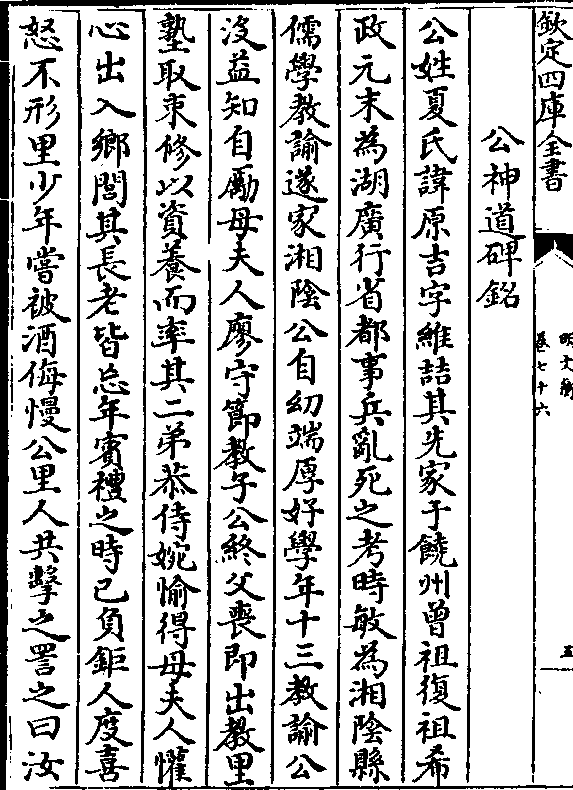 欽定四庫全書
明文衡
卷七十六
五
公神道碑銘
公姓夏氏諱原吉字維喆其先家于饒州曾祖復祖希
政元末為湖廣行省都事兵亂死之考時敏為湘陰縣
儒學教諭遂家湘陰公自幼端厚好學年十三教諭公
沒益知自勵母夫人廖守節教子公終父喪即出教里
塾取束修以資養而率其二弟恭侍婉愉得母夫人懽
心出入鄉閭其長老皆忘年賓禮之時已負鉅人度喜
怒不形里少年嘗被酒侮慢公里人共擊之詈之曰汝